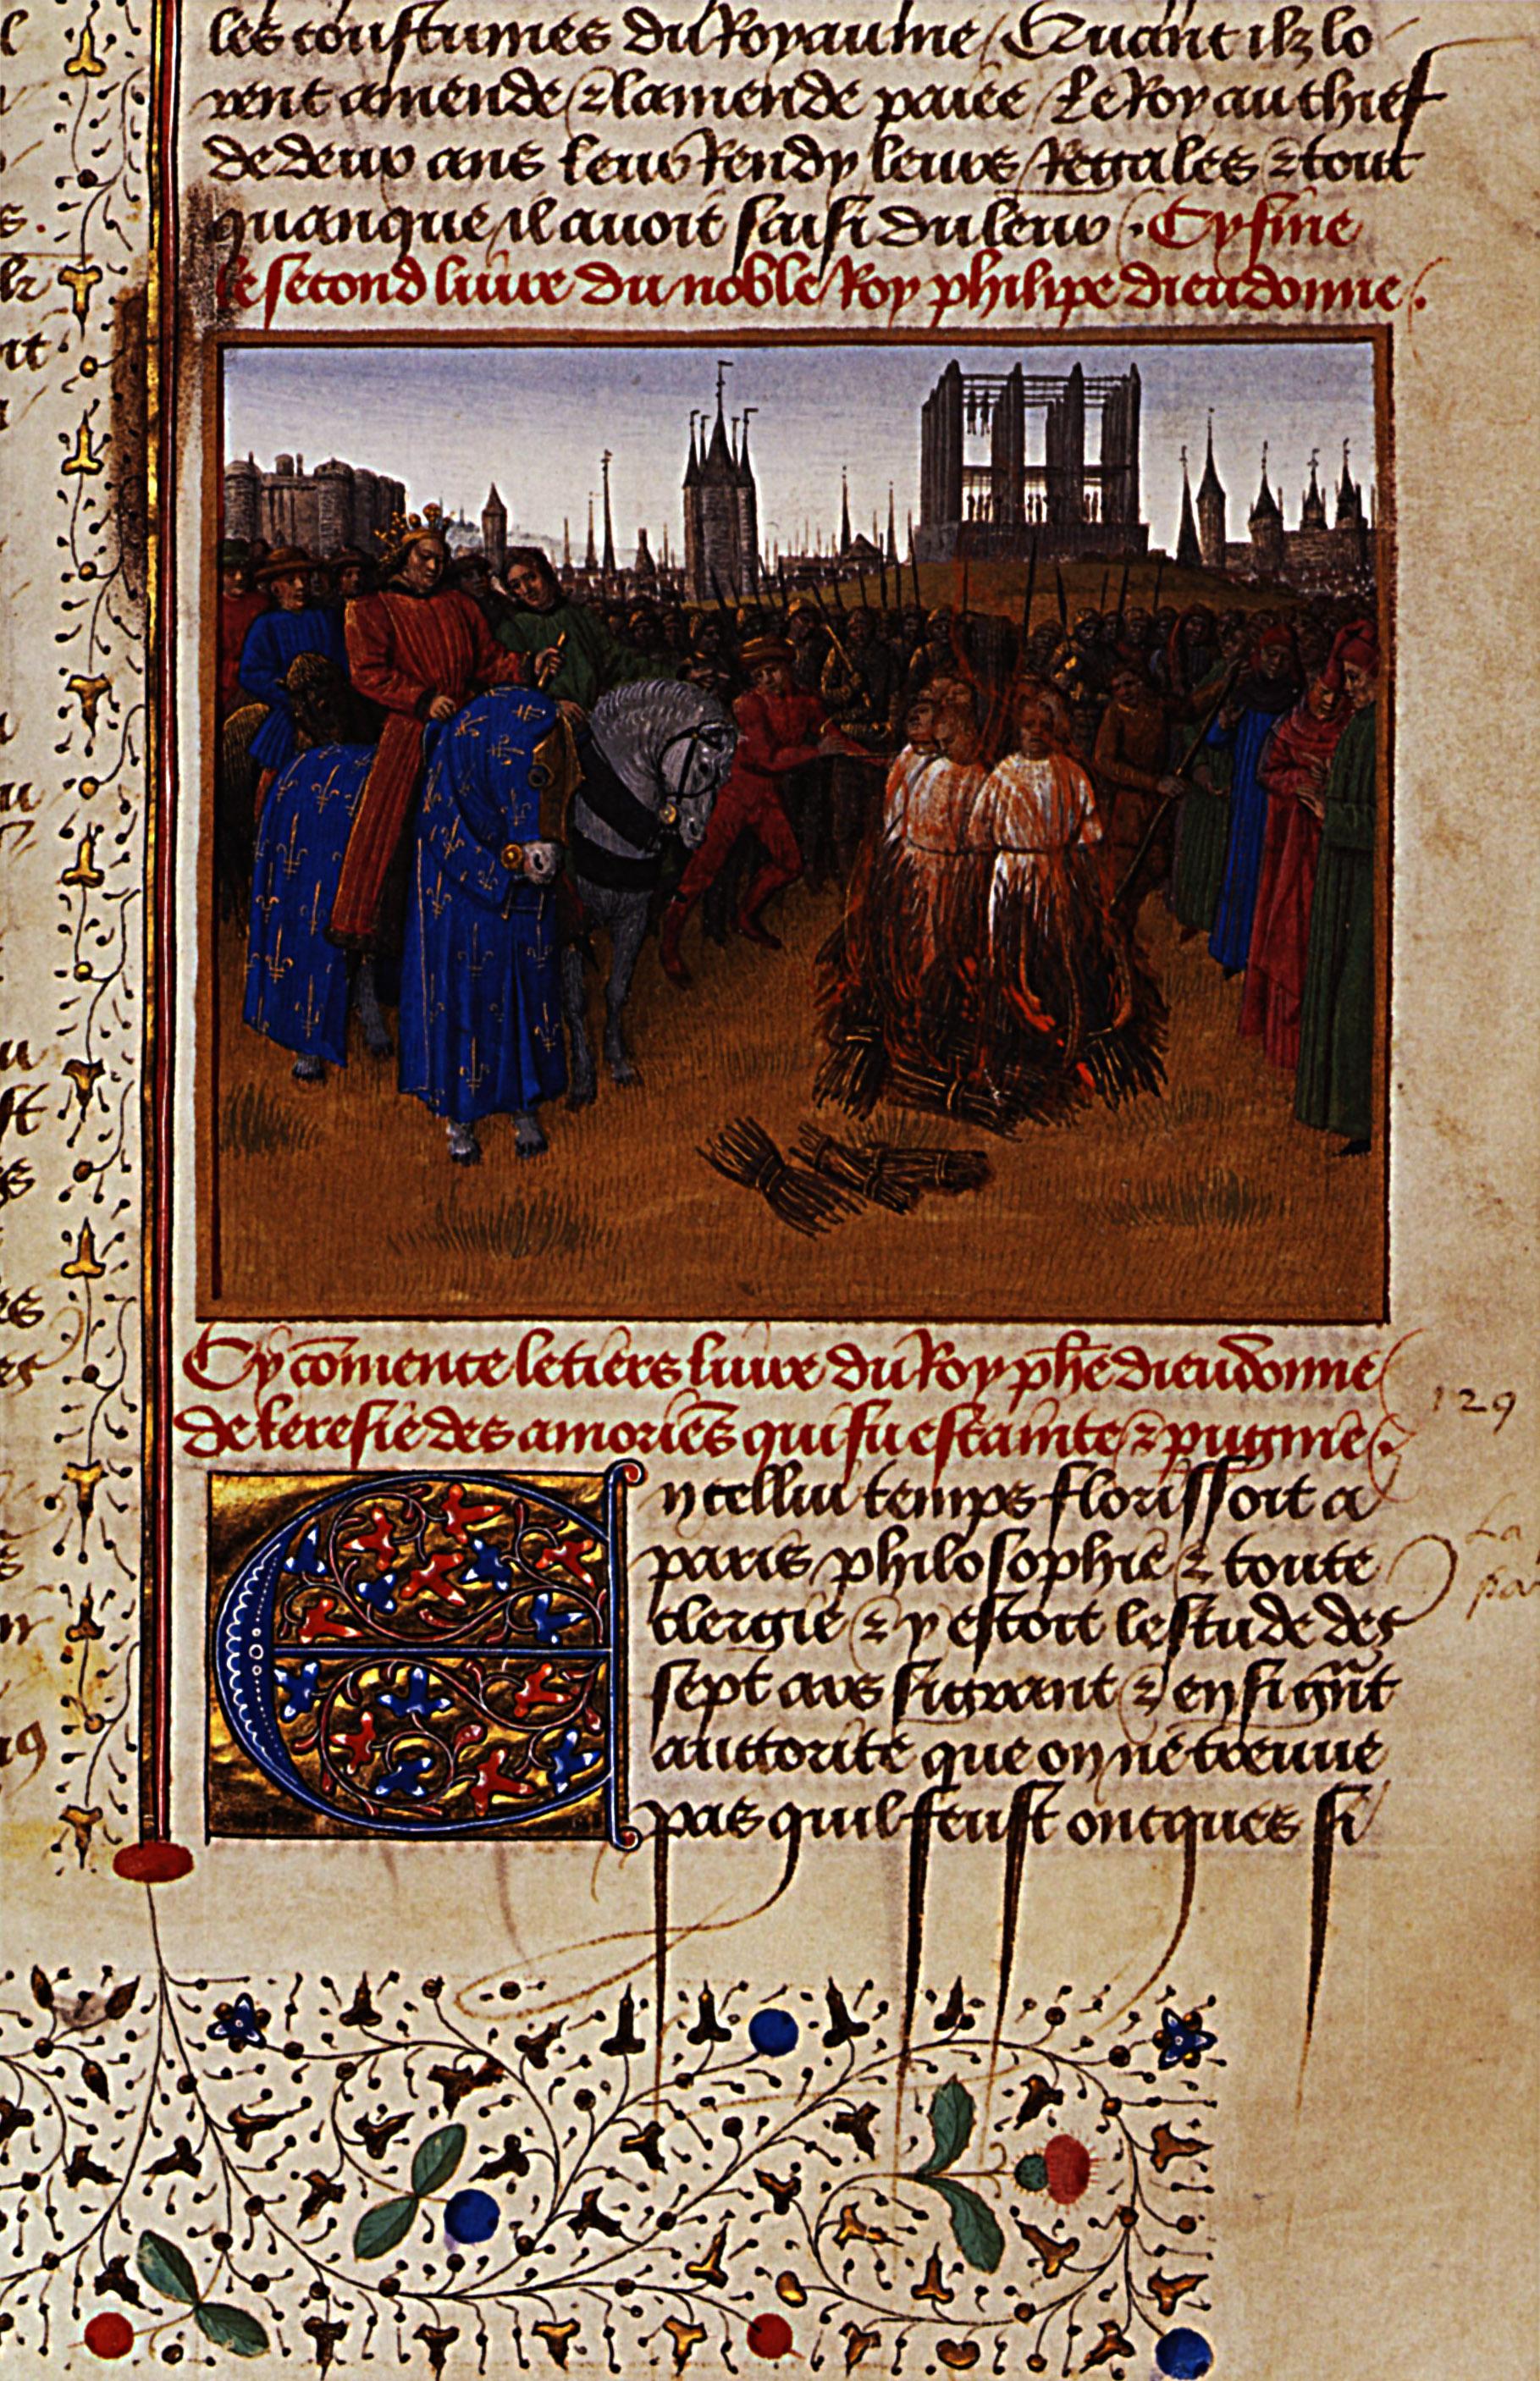 les coustumes du Royaume / Quant ilz lo
rent amende & lamende paiee / Le Roy au chief
de deux ans leur Rendy leurs Regales & tout
quanque il avoit saisi du leur . Cy fine
le second livre du noble Roy philipe dieudonne .
Cy cōmence le tiers livre du Roy phē dieudonne
de leresie des amoriēs qui fu estainte & pugnie .
129
En celluy temps florissoit a
paris philosophie & toute
clergie & y estoit lestude des
sept ars si grant & en si gñt
auctorite que on ne treuve
pas quil feust oncques si